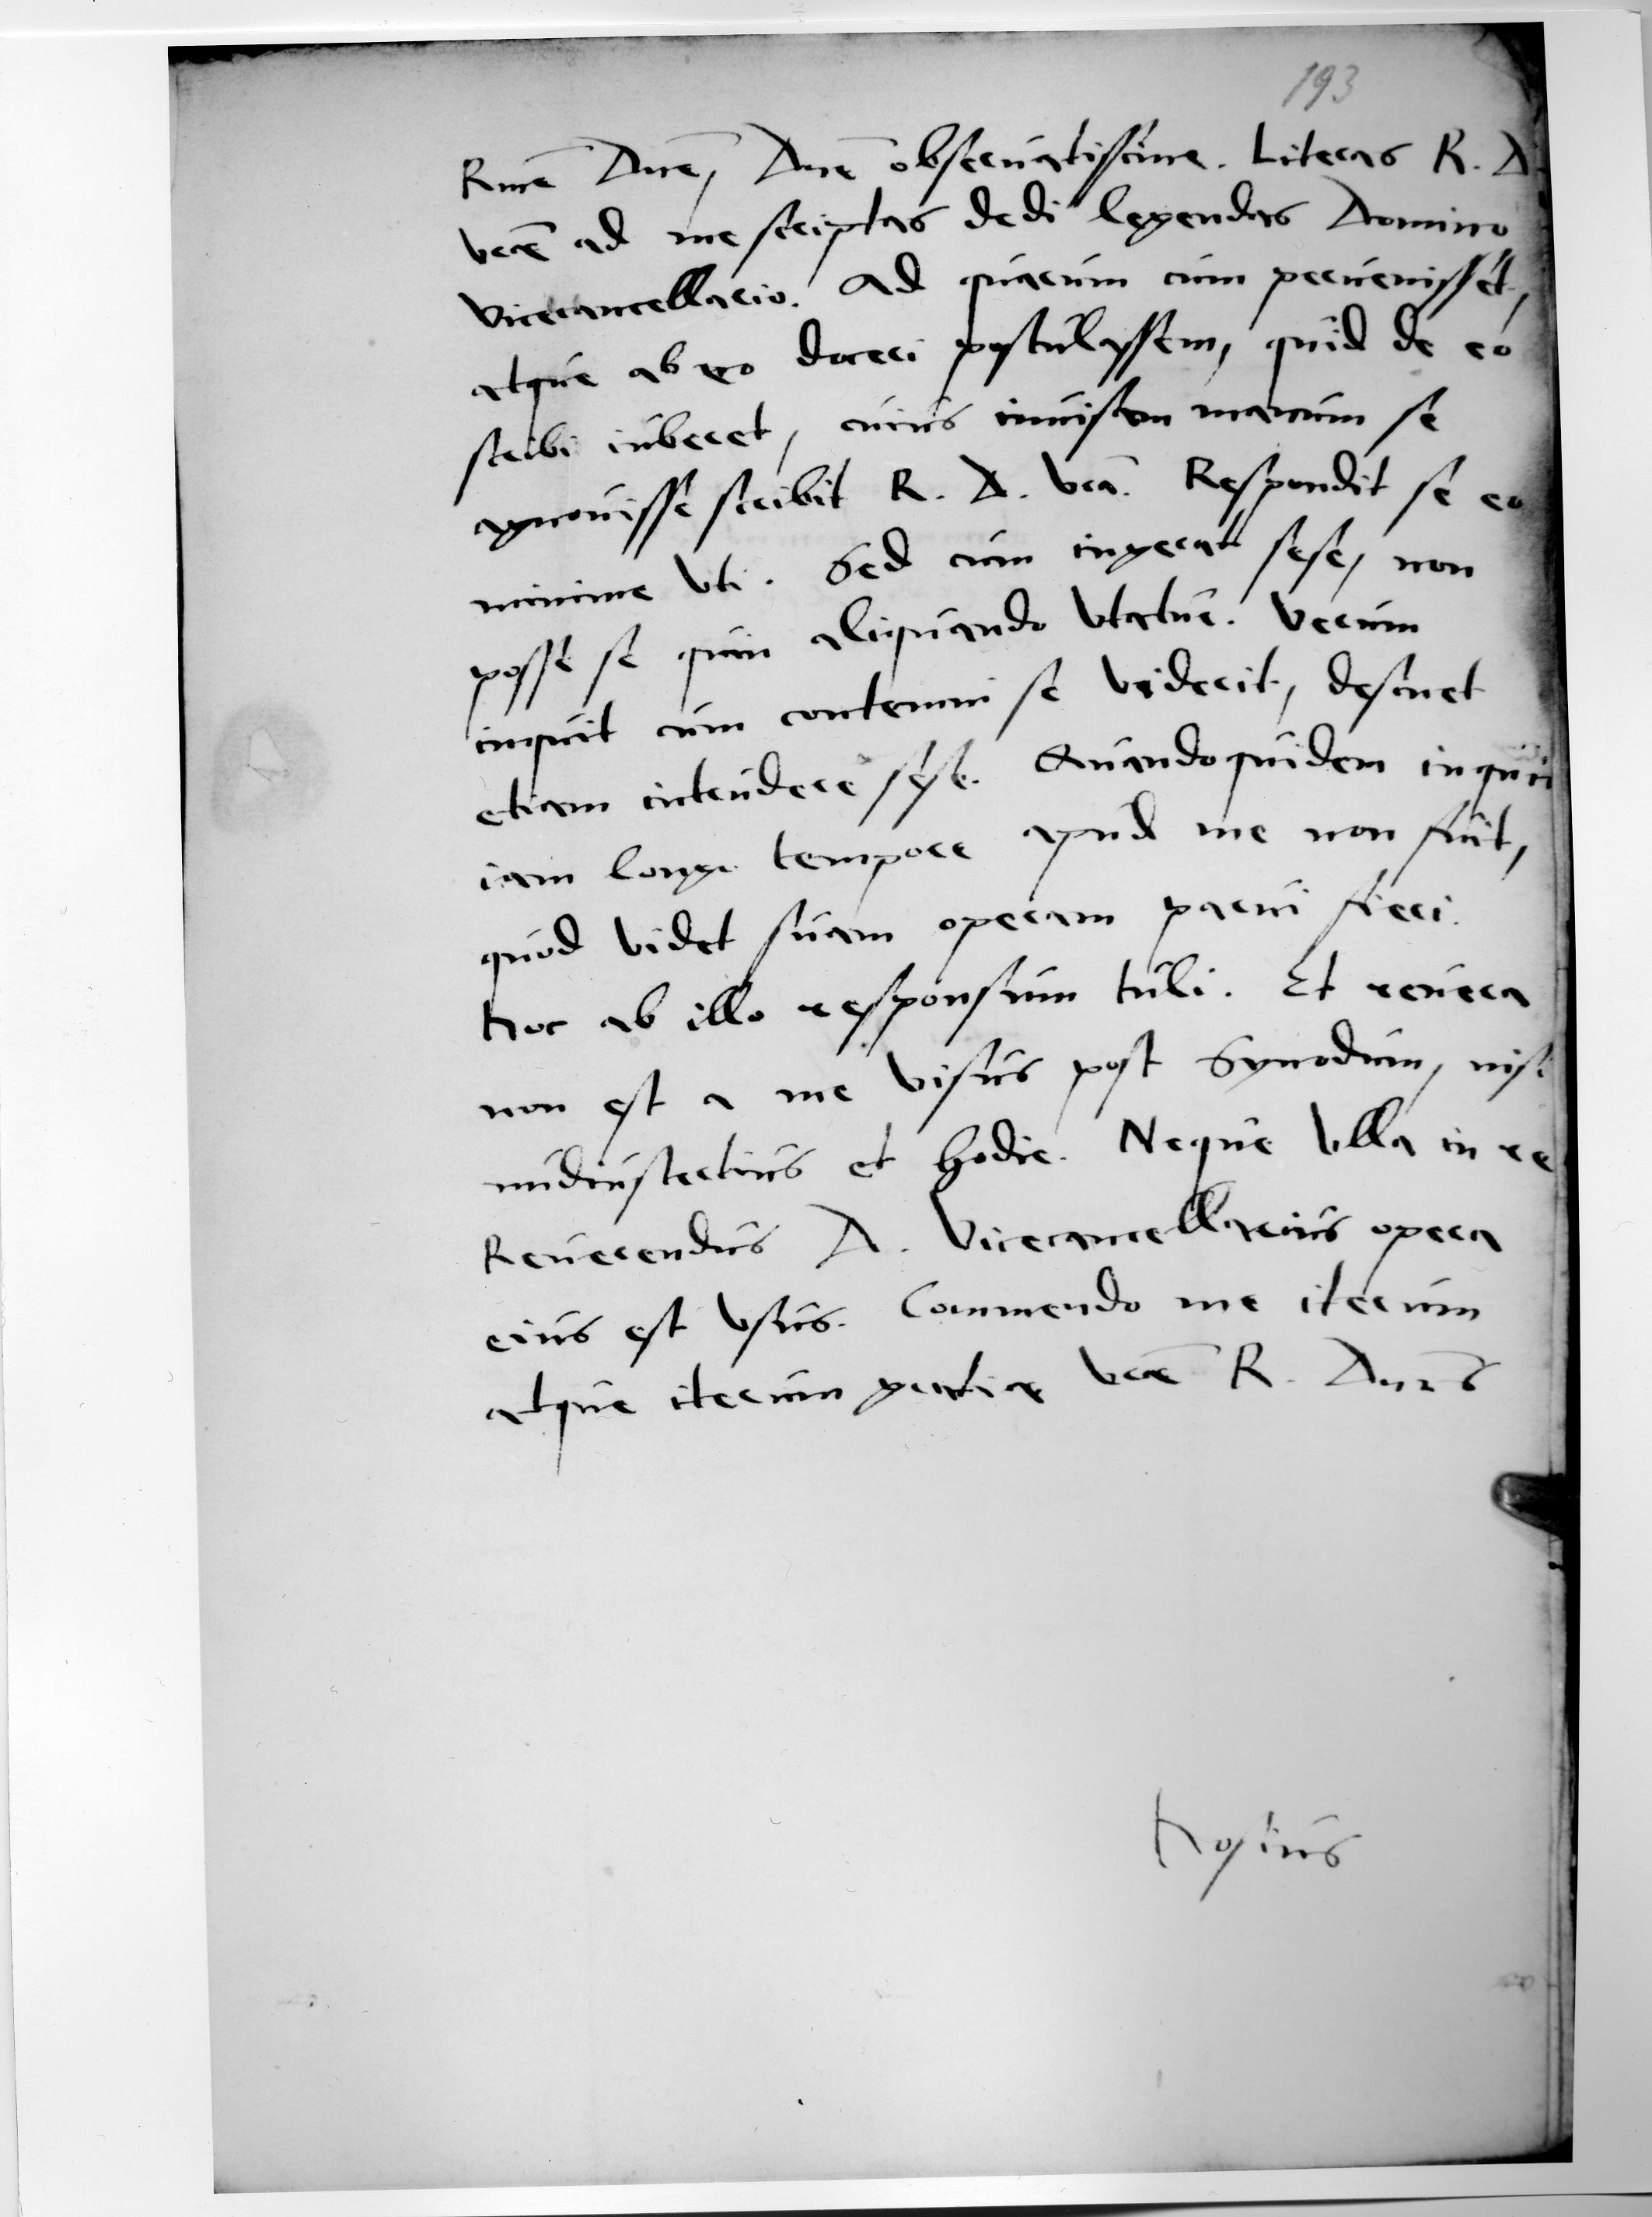 193
Rme Dne, Dne obseruatissime. Literas R. D
vrae ad me scriptas dedi legendas Domino
Vicecancellario. Ad quarum cum peruenisset,
atque ab eo doceri postulassem, quid de eo
scribi iuberet, cuius inuisam manum se
agnouisse scribit R. D. vra. Respondit se eo
minime vti. Sed cum ingerat sese, non
posse se quin aliquando vtatur. Verum
inquit cum contemni se viderit, desinet
etiam intrudere sese. Quandoquidem inquit
iam longo tempore apud me non fuit,
quod videt suam operam parui fieri.
Hoc ab illo responsum tuli. Et reuera
non est a me visus post Synodum, nisi
nudiustertius et hodie. Neque vlla in re
Reuerendus D. Vicecancellarius opera
eius est vsus. Commendo me iterum
atque iterum gratiae vrae R. Dnis
Hosius